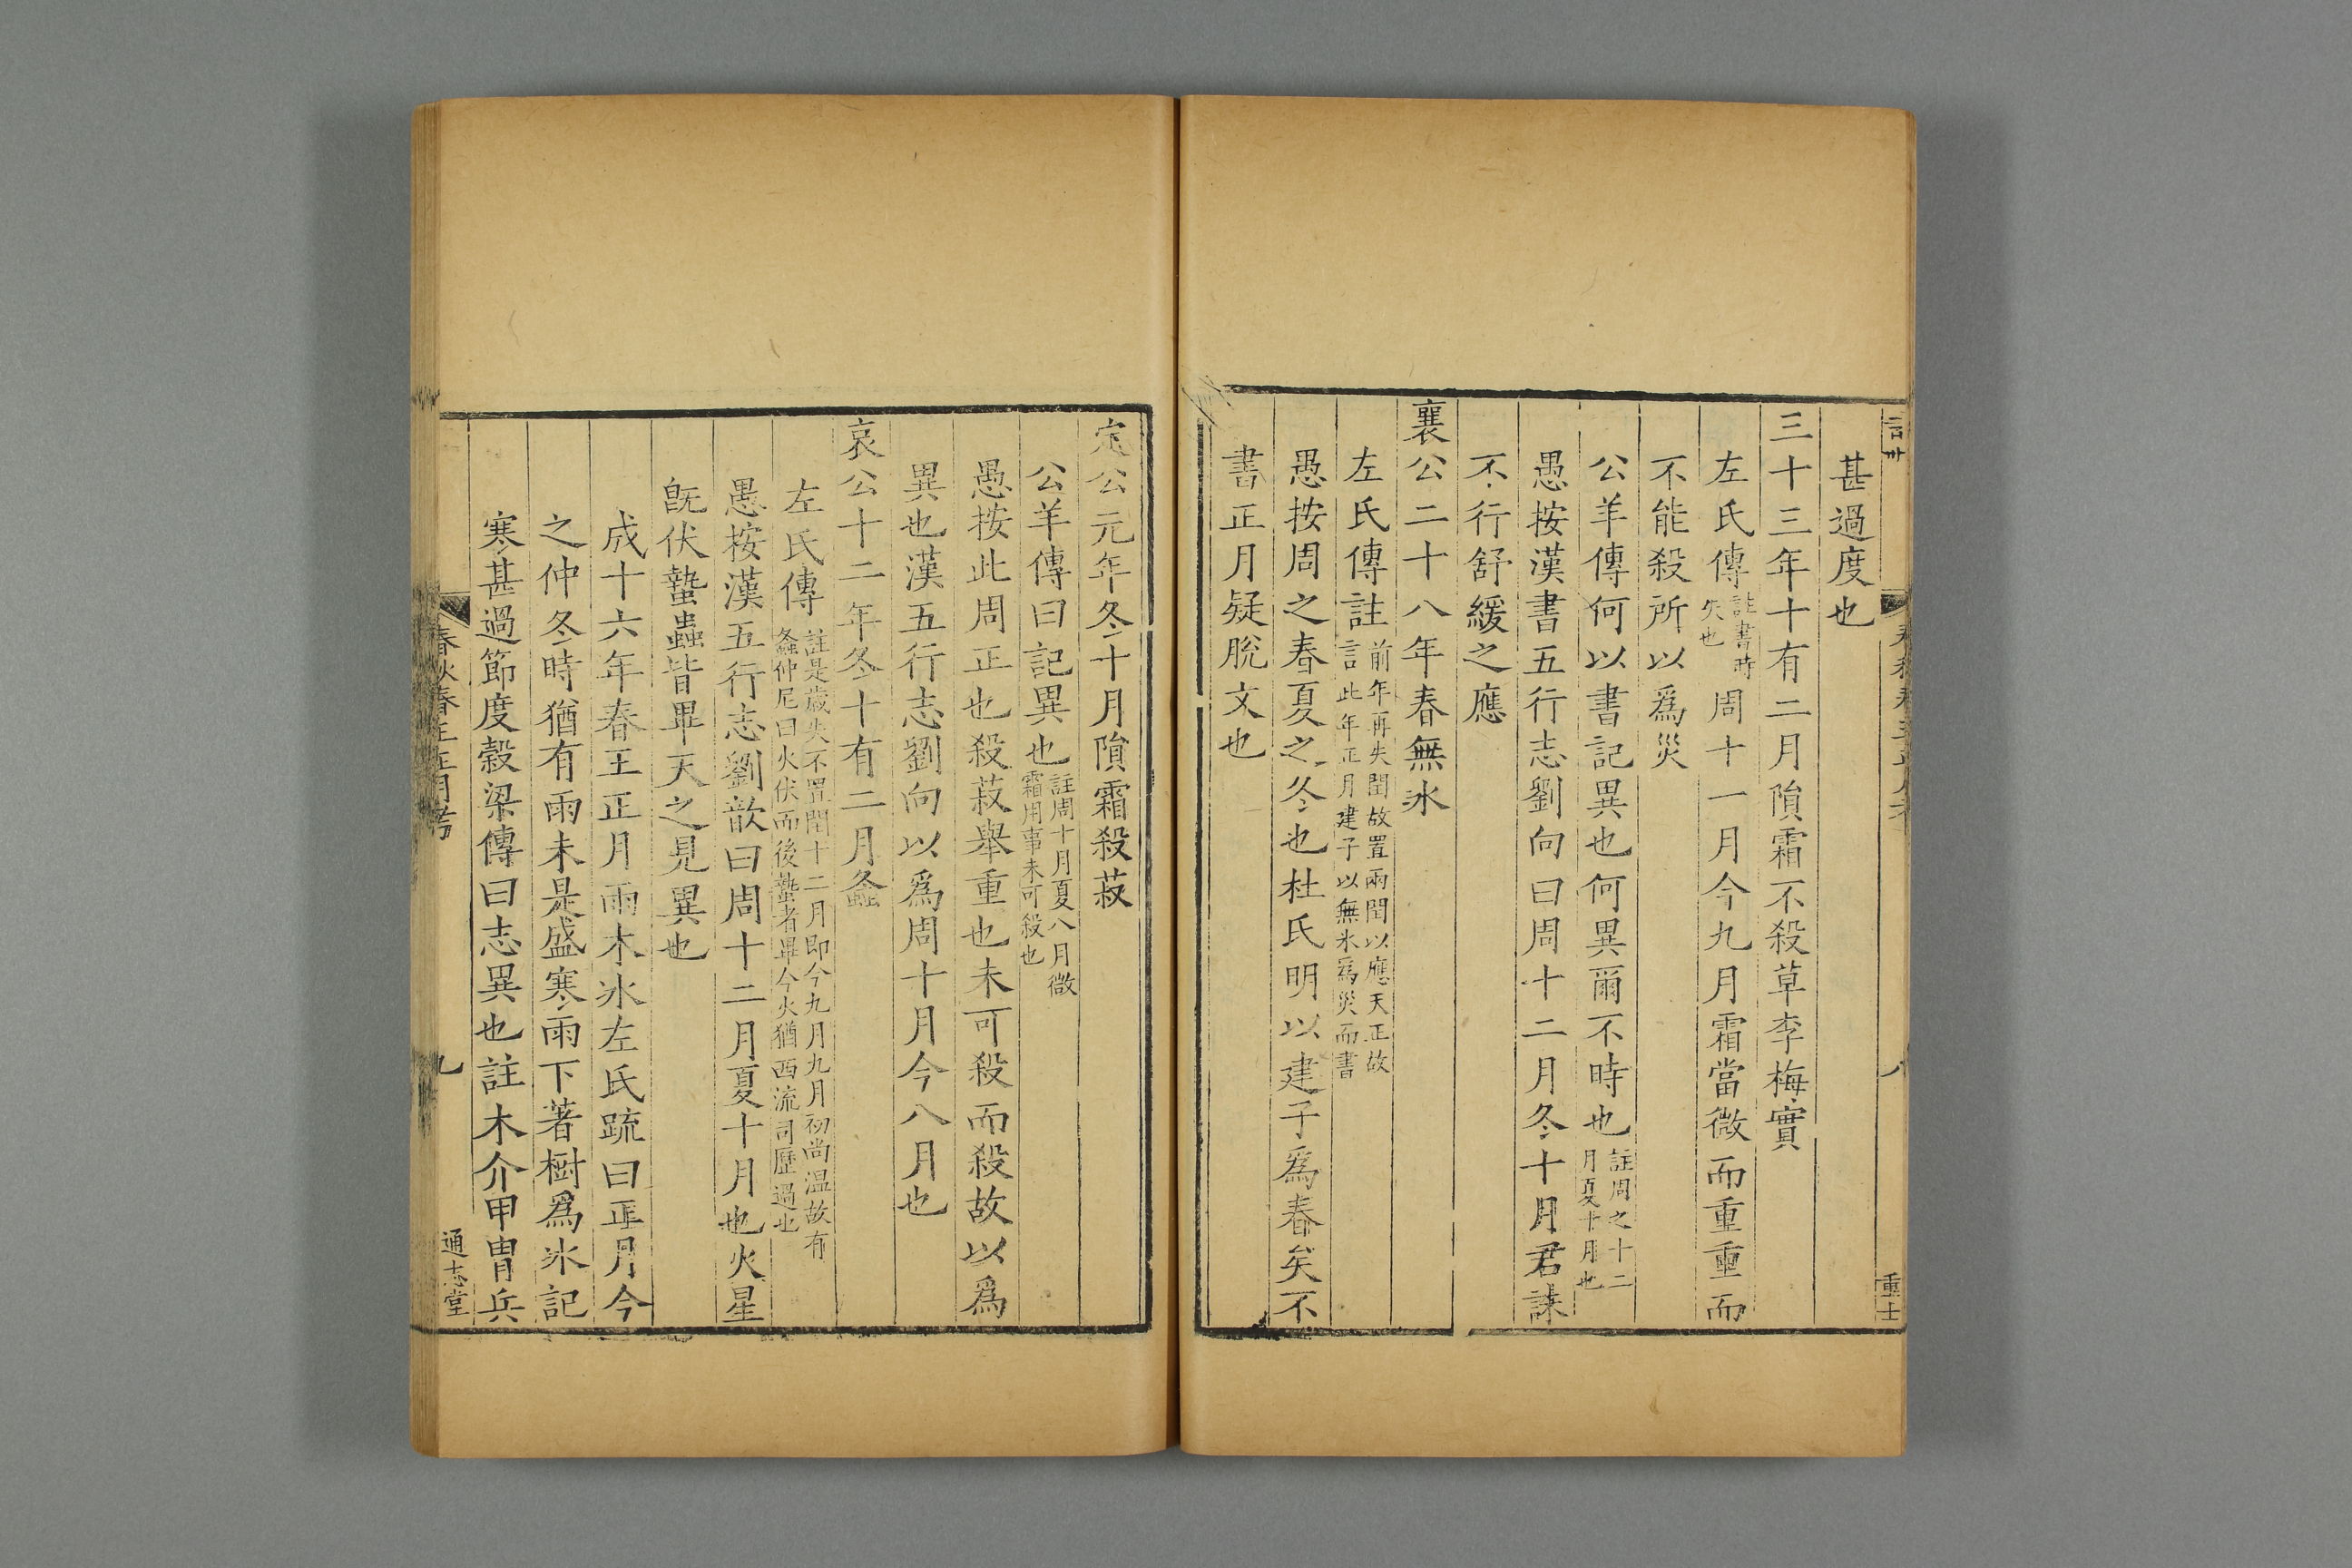 甚過度也
三十三年十有二月隕霜不殺草李梅實
左氏傳註書時失也周十一月今九月霜當微而重重而
不能殺所以爲災
公羊傳何以書記異也何異爾不時也註周之十二月夏十月也
愚按漢書五行志劉向曰周十二月冬十月君誅
不行舒緩之應
襄公二十八年春無冰
左氏傳註前年再失閏故置兩閏以應天正故言此年正月建子以無冰爲災而書
愚按周之春夏之冬也杜氏明以建子爲春矣不
書正月疑脫文也
定公元年冬十月隕霜殺菽
公羊傳曰記異也註周十月夏八月微霜用事未可殺也
愚按此周正也殺菽舉重也未可殺而殺故以爲
異也漢五行志劉向以爲周十月今八月也
哀公十二年冬十有二月螽
左氏傳註是歲失不置閏十二月即今九月九月初尚温故有螽仲尼曰火伏而後蟄者畢今火猶西流司歷過也
愚按漢五行志劉歆曰周十二月夏十月也火星
旣伏蟄蟲皆畢天之見異也
成十六年春王正月雨木冰左氏疏曰正月今
之仲冬時猶有雨未是盛寒雨下著樹爲冰記
寒甚過節度穀梁傳曰志異也註木介甲胄兵
春秋春王正月考
九
通志堂